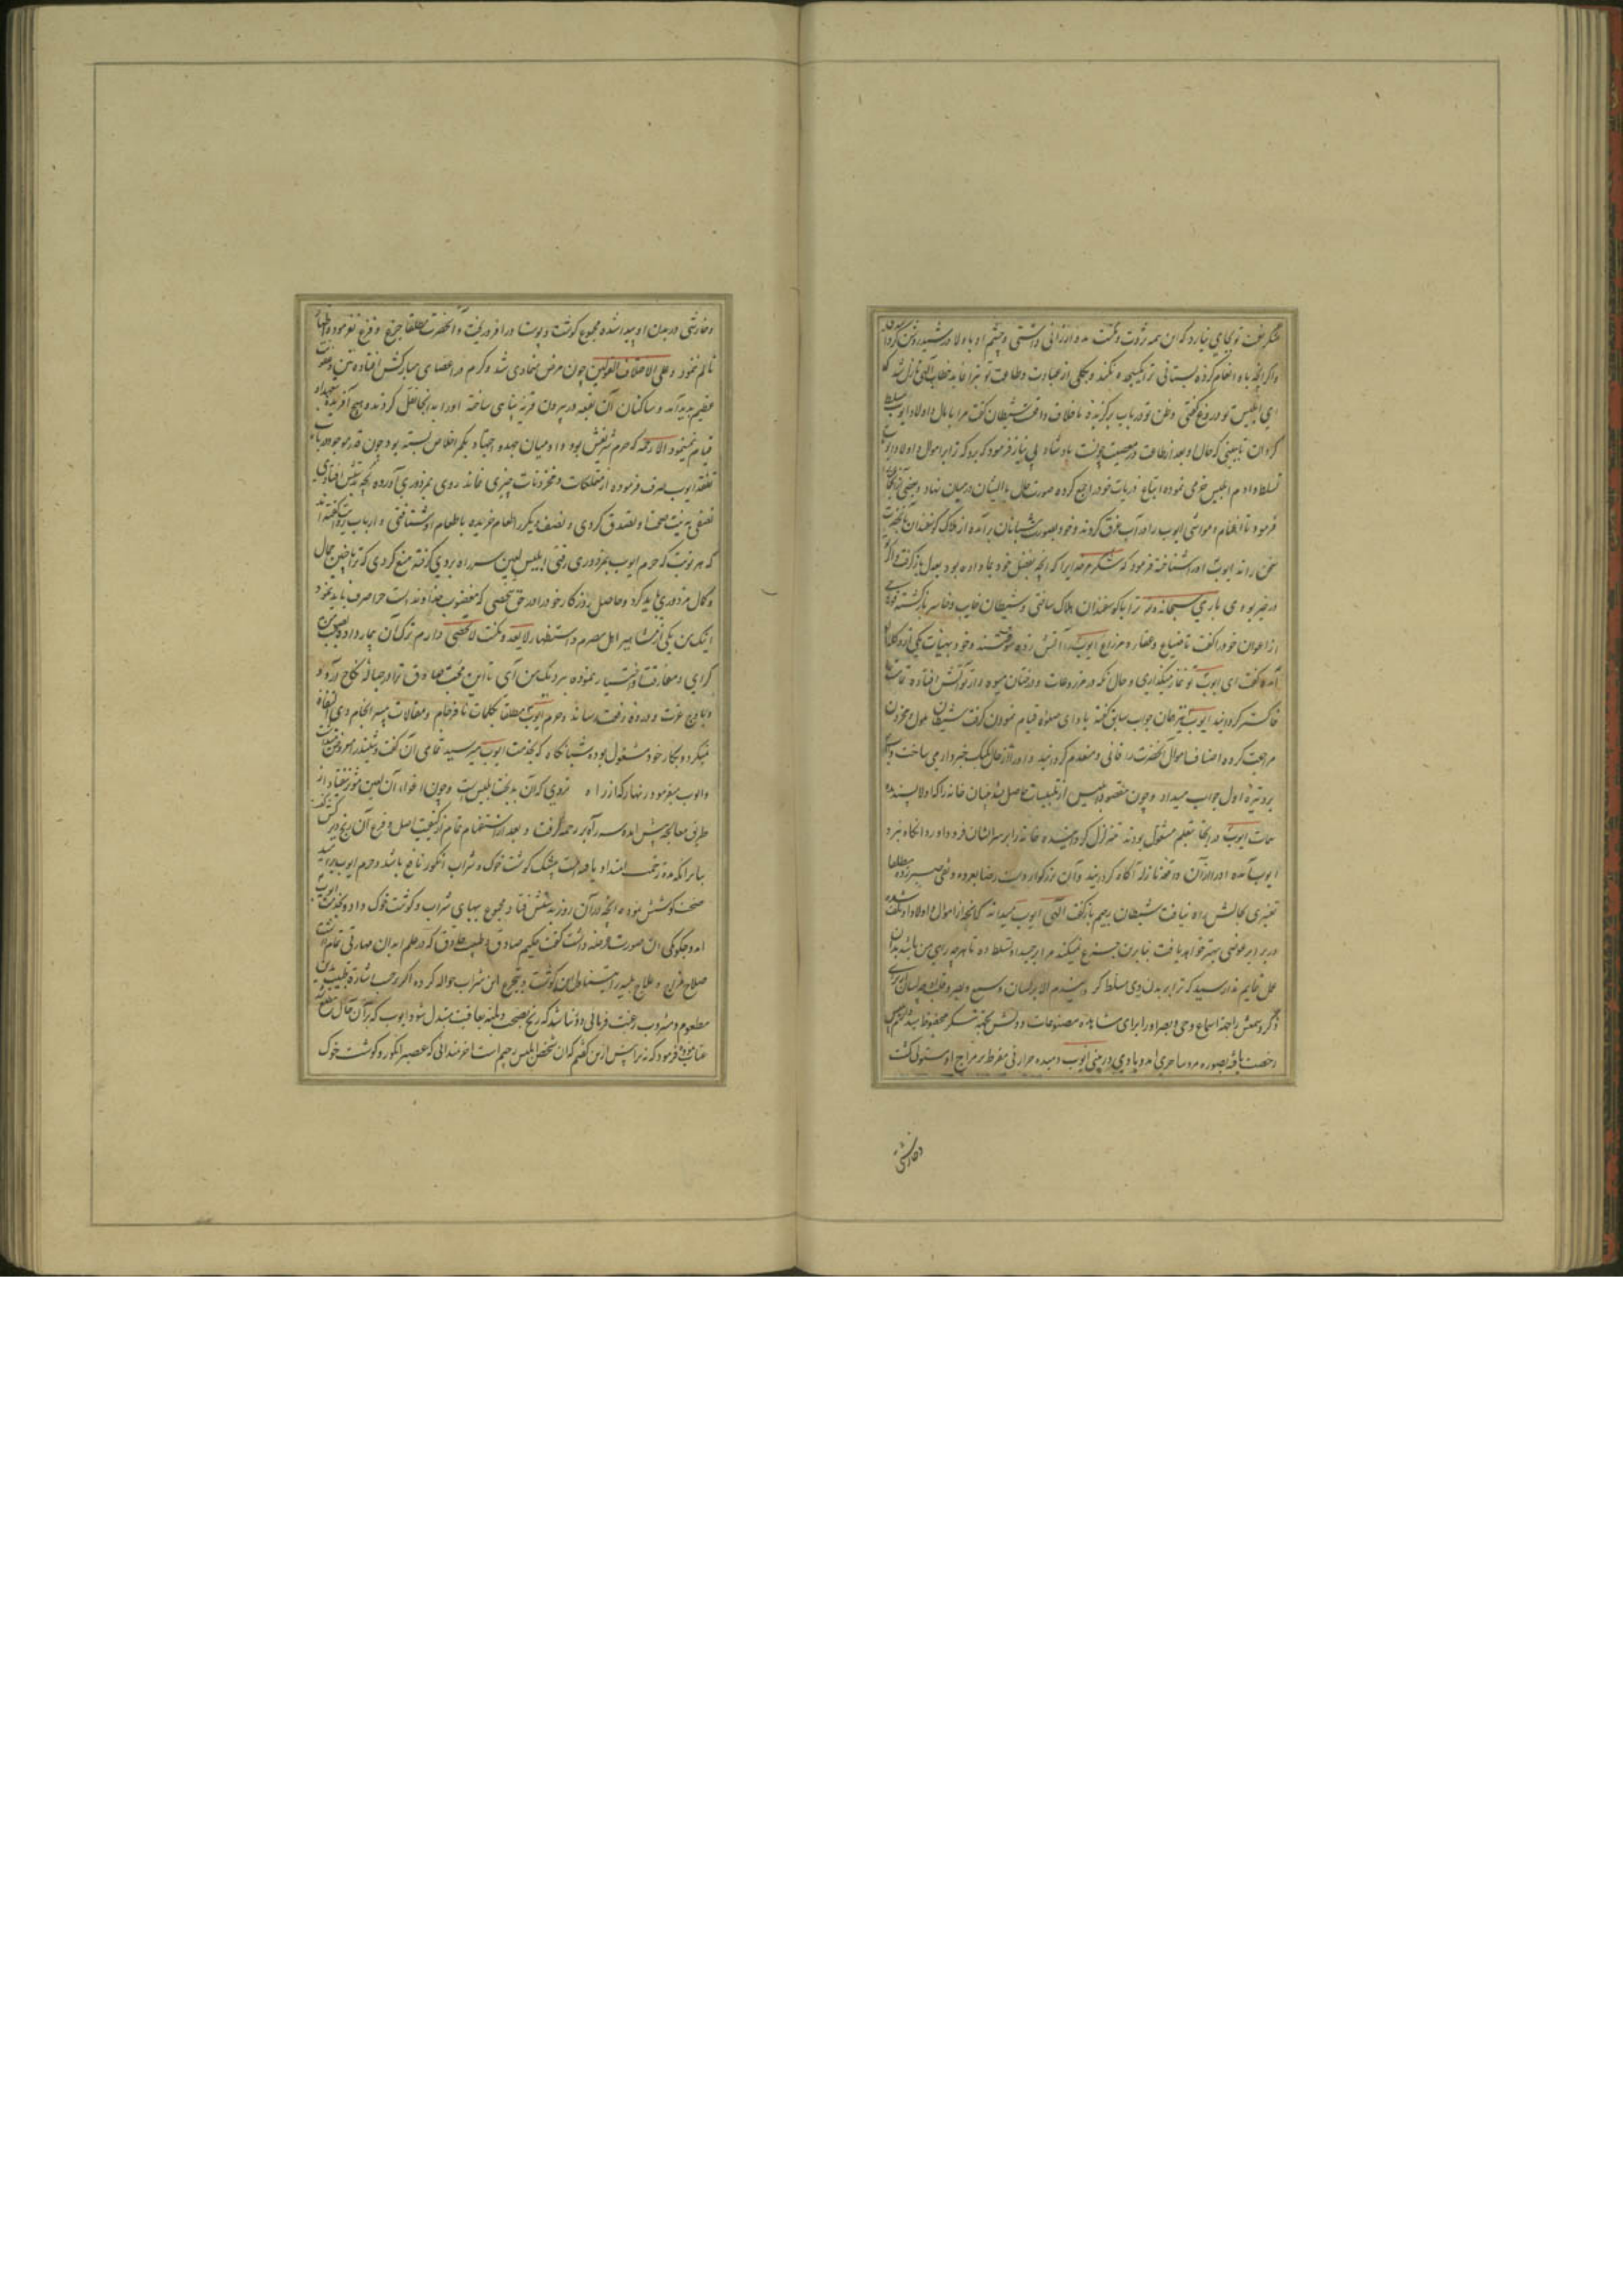 شکر نعمت تو بجای می نیارد که این همه ثروت و مکنت بدو ارزانی داشتی و چشم او باولاد رشید روشن کردا
واکر آنچه باو انعام کرده بستانی ترا یکسجده نکند و بکلی از عبادت و طاعت تو تبرا نماید خطاب الهی نازل شد که
ای ابلیس تو دروغ گفتی و ظن تو در باب برکزیده ما خلاف واقعست شیطان کفت مرا بمال و اولاد ایوب مسلط
کردان تا ببینی که حال او بعد از طاعت در معصیت چونست پادشاه بی نیاز فرمود که برو که ترا بر اموال و اولاد ایوب
تسلط دادم ابلیس خرمی نموده اتباع و ذریات خود را جمع کرده صورت حال با ایشان درمیان نهاد و بعضی از
فرمود تا اغنام و مواشی ایوب را در آب غرق کردند و خود بصورت شبانان برآمده از هلاک کوسفندان با آنحضرت
سخن راند ایوب او را شناخته فرمود که شکر مر خدایرا که آنچه بفضل خود بما داده بود بعدل باز کرفت واکر
در تو خیر بودی باری سبحانه و تعالی ترا با کوسفندان هلاک ساختی و شیطان خایب و خاسر بازکشته
از اعوان خود را کفت تا ضیاع و عقار و مزارع ایوب را آتش زده سوختند و خود بهیات یکی از وکلا
آمده کفت ای ایوب تو نماز میکذاری و حال آنکه در مزروعات و درختان میوه دار تو آتش افتاده تمامت
خاکستر کردانید ایوب نیز همان جواب سابق کفته باداء صلوة قیام نمودن کرفت شیطان ملول و محزون
مراجعت کرده اصناف اموال آنحضرت را فانی و منعدم کردانید و او را از حال یکیک خبردار می ساخت و
بر وتیرهٔ اول جواب میداد و چون مقصود ابلیس از تلبیسات حاصل نشد بنیان خانه را که اولاد پسندیده
سمات ایوب در آنجا بتعلم مشغول بودند متزلزل کردانیده خانه را بر سر ایشان فرود آورد آنکاه نزد
ایوب آمده او را از آن واقعهٔ نازله آکاه کردانید و آن بزرکوار دست رضا بعروه وثقی صبر زده مطلقا
تغییری بحالش راه نیافت شیطان رجیم باز کفت الهی ایوب میداند که آنچه از اموال و اولاد او تلف شده
در برابر عوضی بهتر خواهد یافت بنابرین جزع نمیکند مرا بر جسد او تسلط ده تا هر چه رای من باشد بدان
عمل نمایم ندا رسید که ترا بر بدن وی مسلط کردانیدم الا بر لسان و سمع و بصر و قلب او چه لسان برای
ذکر و سمعش را بجهة استماع وحی و بصر او را برای مشاهده مصنوعات و دلش بجهة تفکر محفوظ
رخصت یافته بصورت مرد ساحری آمد و بادی در بینی ایوب دمیده حرارتی مفرط بر مزاج او مستولی کشت
وخارشی
وخارشی در بدن او پیدا شده مجموع کوشت و پوست او را فرو ریخت و آنحضرت مطلقا جزع و فزع نفرمود و اظهار
تألم ننمود و علی الاختلاف القولین چون مرض متمادی شد و کرم در اعضای مبارکش افتاده نتن و عفونت
عظیم پدید آمد و ساکنان آن بقعه در بیرون قریه پناهی ساخته او را بدانجا نقل کردند و هیچ آفریده
قیام نمینمود الا رحمه که حرم شریفش بود و او میان بجهد و اجتهاد بکمر اخلاص بسته بود چون قدر موجود
نفقه ایوب صرف فرموده از متملکات و مخزونات چیزی نماند روی بمزدوری آورده آنچه بدستش افتادی
نصفی به نیت صحت او تصدق کردی و بنصف دیکر طعام خریده با طعام او شتافتی و ارباب روایت کفته اند
که هر نوبت که حرم ایوب بمزدوری رفتی ابلیس لعین سر راه بر وی کرفته منع کردی که ترا با چنین جمال
و کمال مزدوری باید کرد و حاصل روزکار خود را در حق شخصی که مغضوب خداوند است چرا صرف باید نمود
اینک من یکی از مشاهیر اهل مصرم و استظهار لایعد و مکنت لا تحصی دارم ترک آن بیمار داده
کرای و مفارقت اختیار نموده نزدیک من آی تا این محب صادق ترا در حبالهٔ نکاح درآورد
و باوج عزت و ذروهٔ رفعت رساند و حرم ایوب مطلقا بکلمات نافرجام و مقالات بی سرانجام وی التفات
نمیکرد و بکار خود مشغول بوده شبانکاه که بخدمت ایوب میرسید تمامی آن کفت و شنید را معروض میداشت
و ایوب میفرمود زنهار که از راه نروی که آن بدبخت ابلیس است و چون اغواء آن لعین مؤثر نیفتاد از
طریق معالجه پیش آمده سر راه بر رحمه کرفت و بعد از استفهام تمام از کیفیت اصل و فرع آن رنج
بنابر آنکه مدة زحمت امتداد یافته است بیشک کوشت خوک و شراب انکور نافع باشد و حرم ایوب برای
صحت کوشش نموده آنچه در آن روز بدستش افتاد مجموع ببهای شراب و کوشت خوک داد و بخدمت ایوب
آمد و چکونکی آن صورت عرضه داشت کفت حکیم صادق و طبیب حاذق که در علم ابدان مهارتی تمام داشت
صلاح مزاج و علاج جسد را باستنباط این کوشت و تجرع این شراب حواله کرده اکر بر حسب اشارة طبیب
مطعوم و مشروب رغبت فرمائی دور نباشد که رنج بصحت و بلیه بعافیت مبدل شود ایوب که بر آن حال مطلع
عتاب نموده فرمود که نه ترا پیش ازین کفتم که آن شخص ابلیس رجیم است آخر نمیدانی که عصیر انکور و کوشت خوک